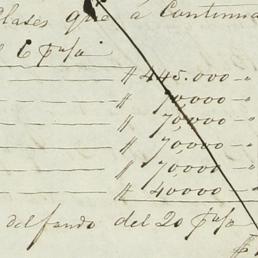 Clases que á Continua
6 p%
$ 445.000-"
" 70,000-"
" 70,000-"
" 70,000-"
" 70,000-"
" 40000-"
del fondo del 20 p%